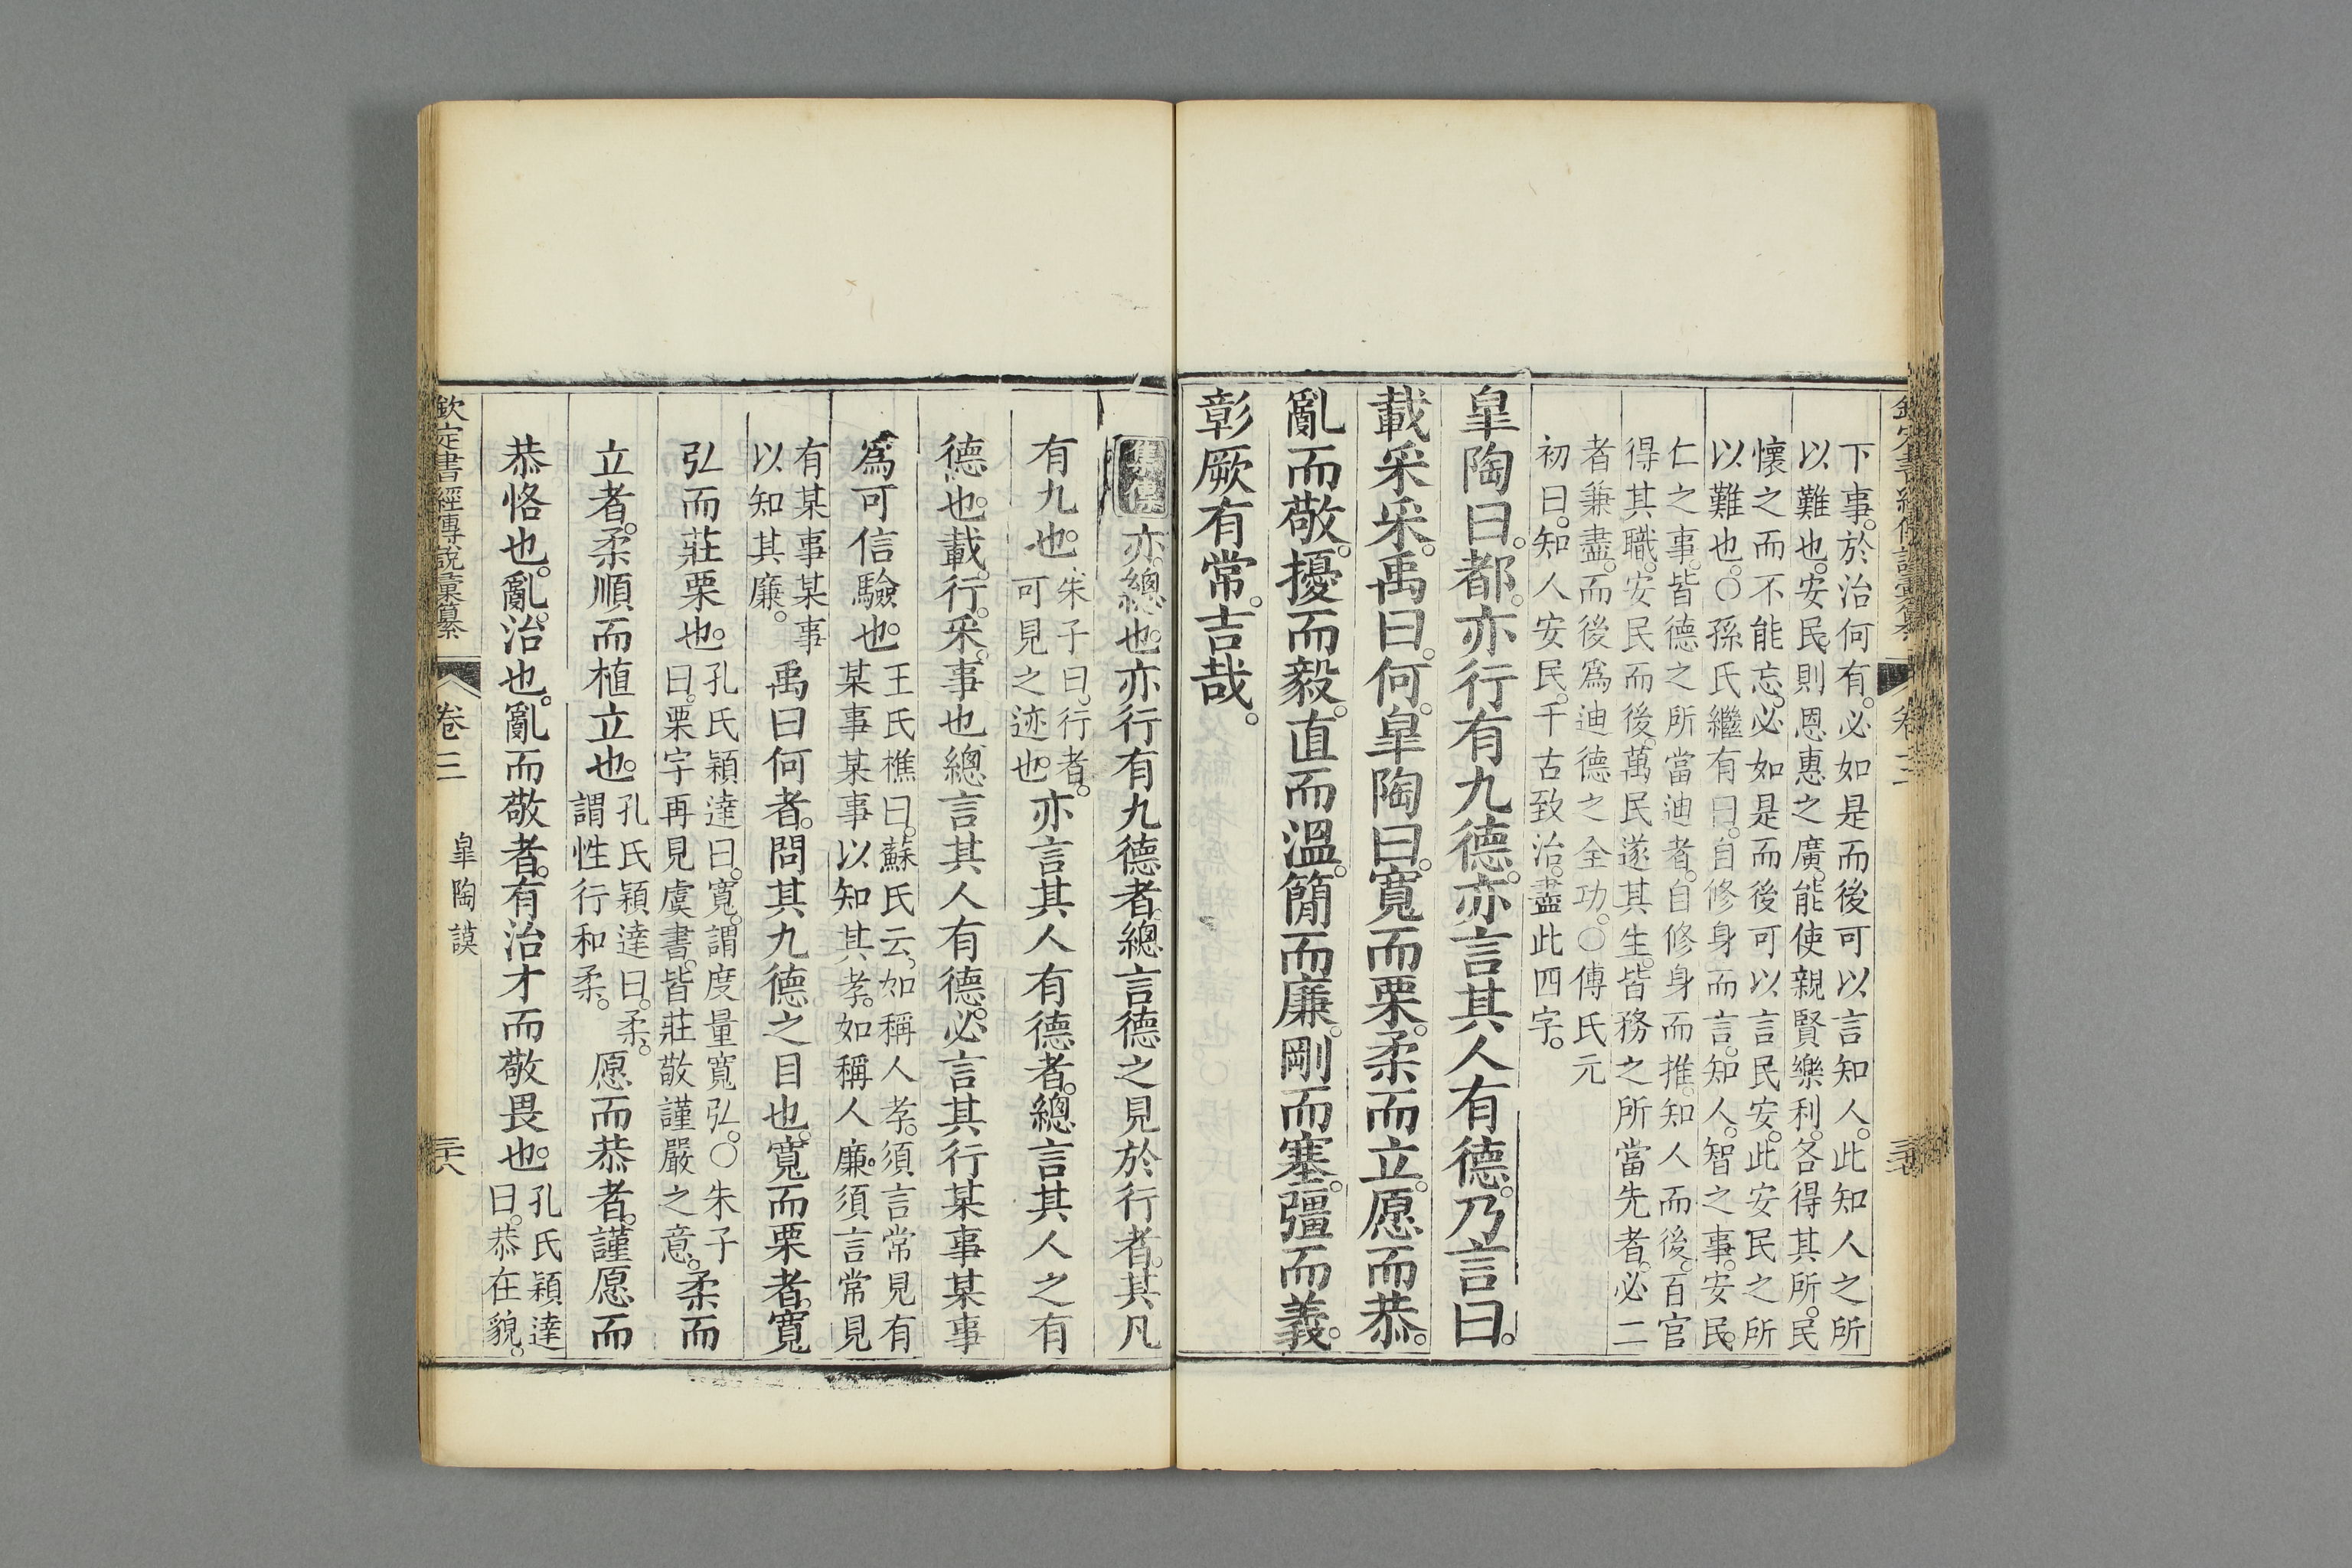 下事。於治何有。必如是而後可以言知人。此知人之所
以難也。安民則恩惠之廣。能使親賢樂利。各得其所。民
懷之而不能忘。必如是而後可以言民安。此安民之所
以難也。〇孫氏繼有曰。自修身而言。知人。智之事。安民。
仁之事。皆德之所當迪者。自修身而推。知人而後。百官
得其職。安民而後。萬民遂其生。皆務之所當先者。必二
者兼盡。而後爲迪德之全功。〇傳氏元
初曰。知人安民。千古致治。盡此四字。
皐陶曰。都。亦行有九德。亦言其人有德。乃言曰。
載采采。禹曰。何。皐陶曰。寬而栗。柔而立。愿而恭。
亂而敬。擾而毅。直而溫。簡而廉。剛而塞。彊而義。
彰厥有常。吉哉。
集傳 亦。總也。亦行有九德者。總言德之見於行者。其凡
有九也。
朱子曰。行者。
可見之迹也。
亦言其人有德者。總言其人之有
德也。載。行。采。事也。總言其人有德。必言其行某事某事
爲可信驗也。
王氏樵曰。蘇氏云。如稱人孝。須言常見有
某事某事以知其孝。如稱人廉。須言常見
有某事某事
以知其廉。
禹曰何者。問其九德之目也。寬而栗者。寬
弘而莊栗也。
孔氏穎達曰。寬。謂度量寬弘。〇朱子
曰。栗字再見虞書。皆莊敬謹嚴之意。
柔而
立者。柔順而植立也。
孔氏穎達曰。柔。
謂性行和柔。
愿而恭者。謹愿而
恭恪也。亂。治也。亂而敬者。有治才而敬畏也。
孔氏穎達
曰。恭在貌。
欽定書經傳說彙纂 卷三 皐陶謨 三十六